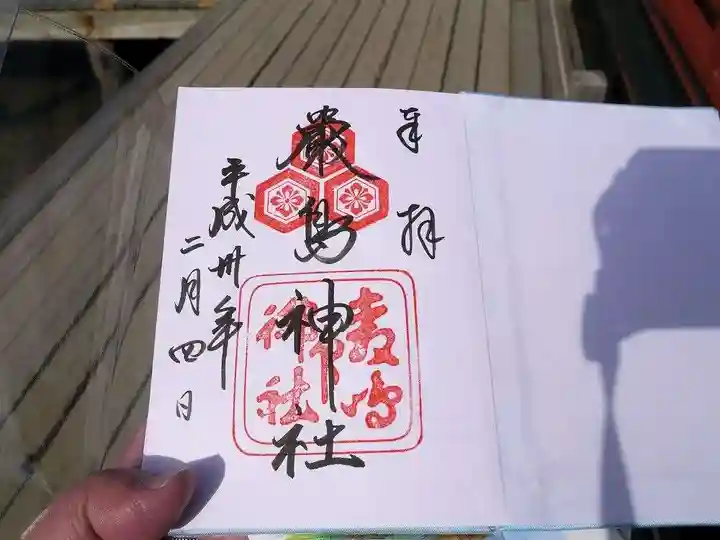 奉拝
嚴島神社
嚴島
神社
平成卅年
二月四日